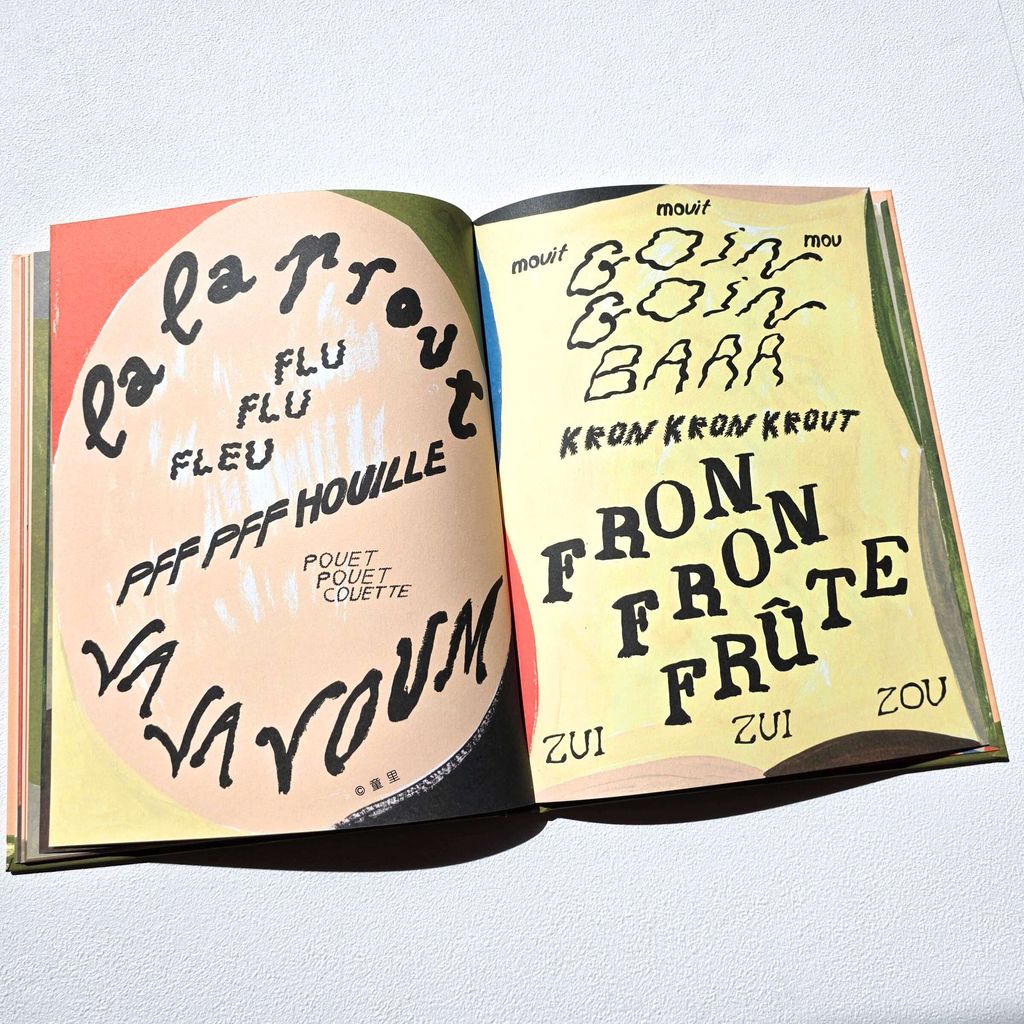 la la Prout
FLU
FLU
FLEU
PFF PFF HOUILLE
POUET
POUET
COUETTE
VA
VA VOUM
© 童里
mouit mouit mou
GOiN
GOiN
BAAA
KRON KRON KROUT
FRON
FRON
FRÛTE
ZUI ZUI ZOU